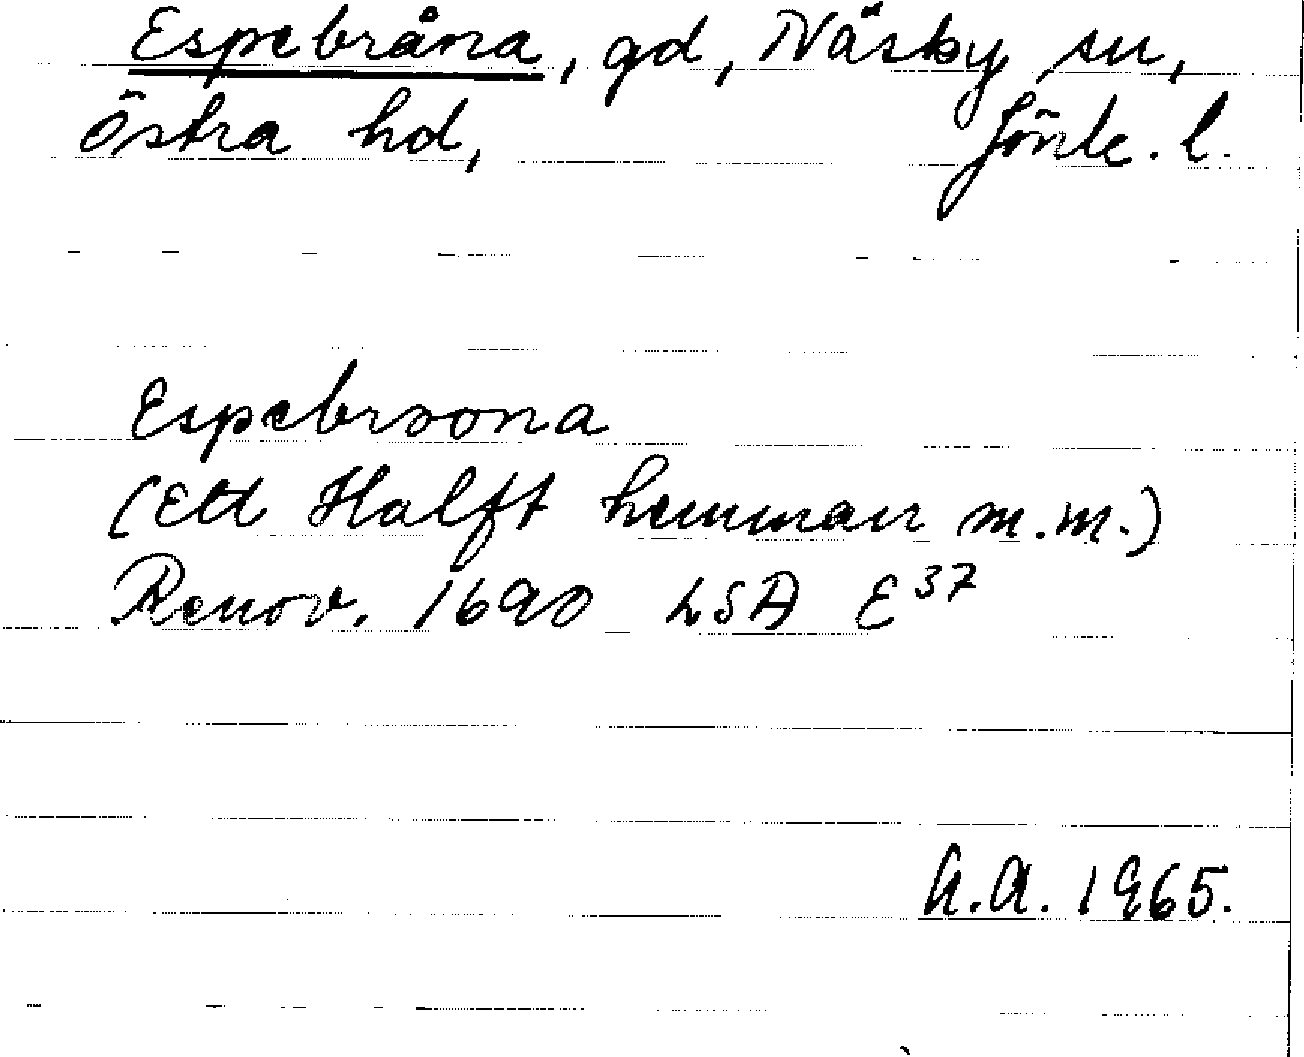 Espebråna, gd, Näsby sn,
Östra hd, Jönk. l.
Espebroona
(Ett Halft hemman m.m.)
Renov. 1690 LSA E³⁷
A.A. 1965.